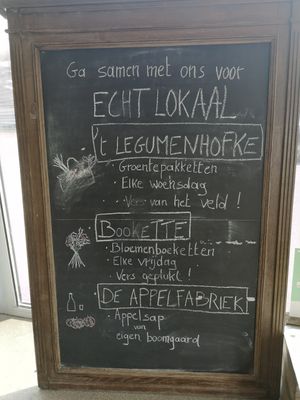 Ga samen met ons voor
ECHT LOKAAL
't LEGUMENHOFKE
· Groentepakketten
· Elke woensdag
· Vers van het veld !
BOOKETTE
· Bloemenboeketten
· Elke vrijdag
· Vers geplukt !
DE APPELFABRIEK
· Appelsap
van
eigen boomgaard